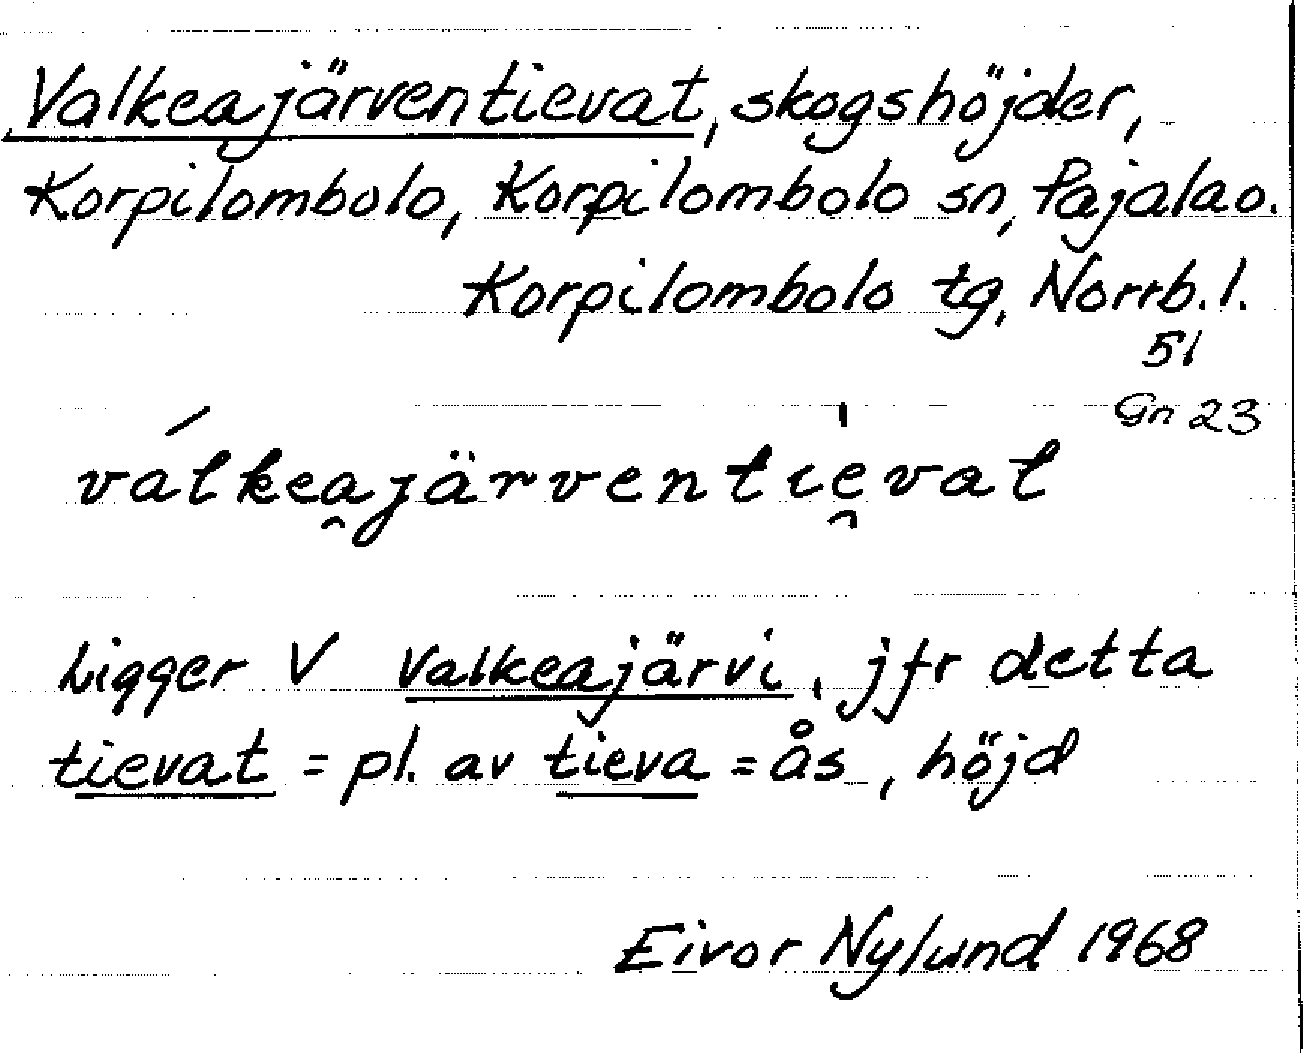 Valkeajärventievat, skogshöjder,
Korpilombolo, Korpilombolo sn, Pajala o.
Korpilombolo tg, Norrb. l.
51
Gn 23
válkea̯järventìe̯vat
Ligger V Valkeajärvi, jfr detta
tievat = pl. av tieva = ås, höjd
Eivor Nylund 1968